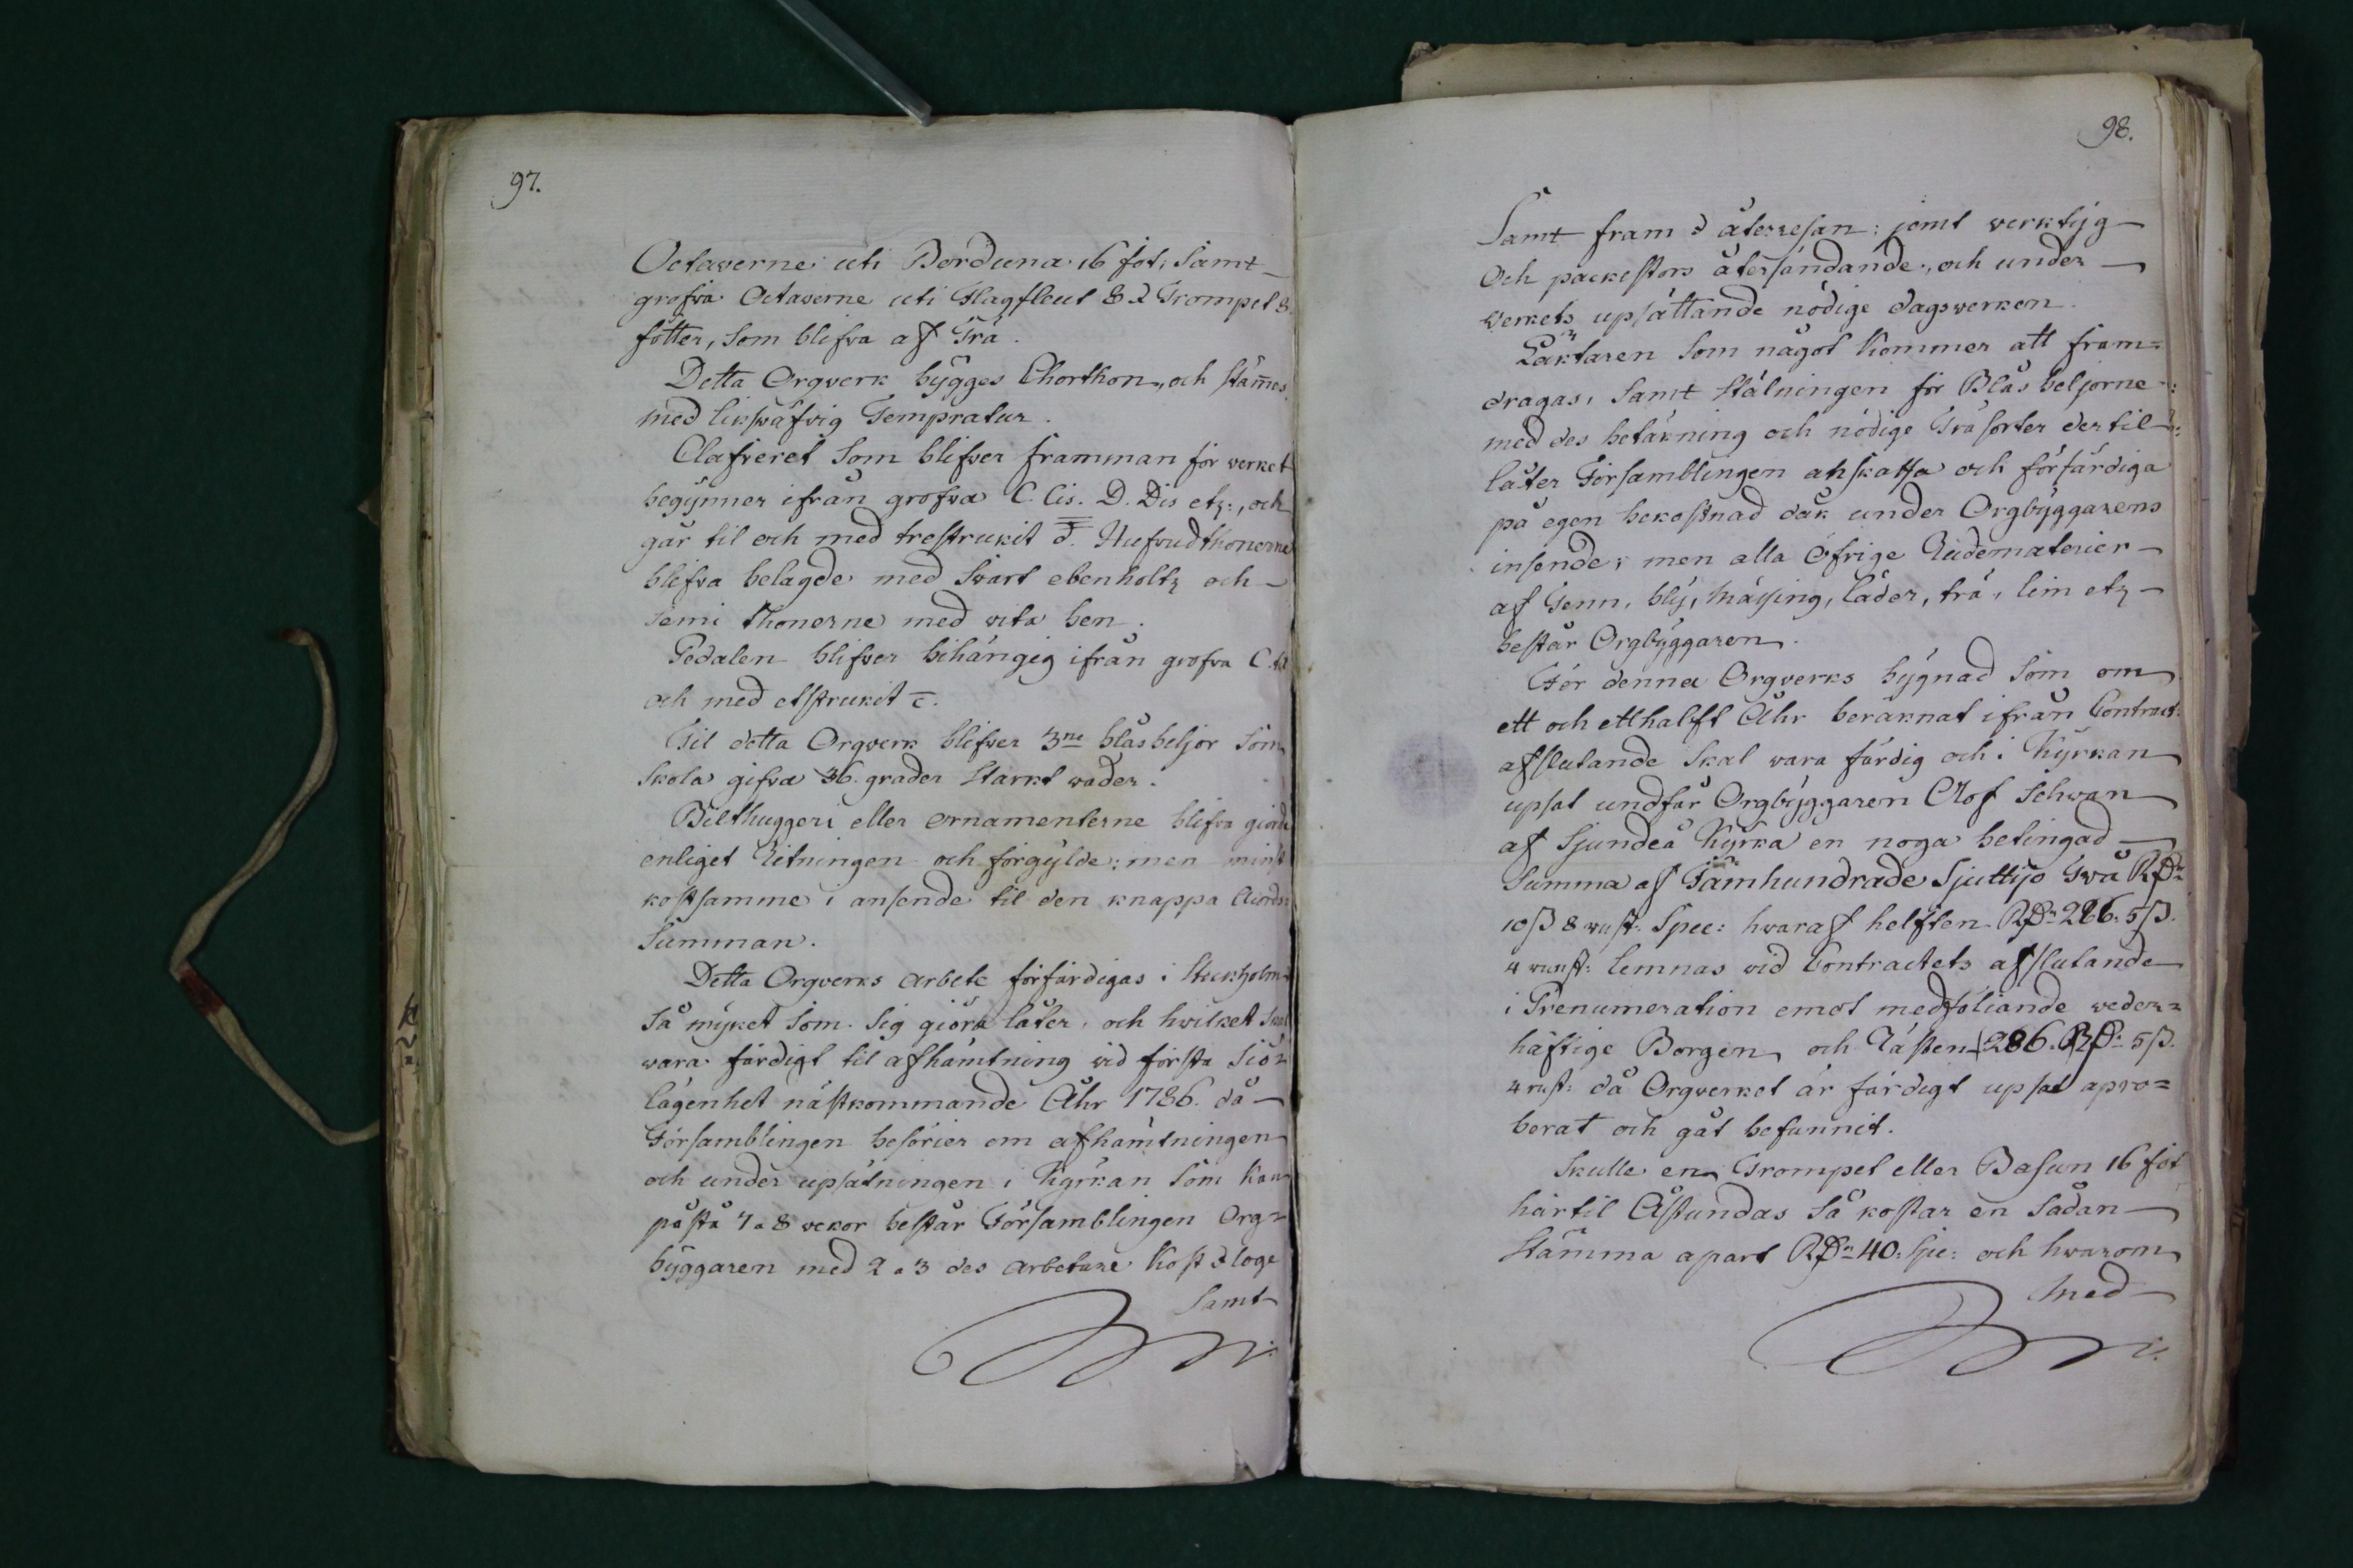 97.
Octaverne uti Borduna 16 fot, Samt
grofva Octaverne uti Flagfleut 8 & Trompet 8.
fötter, Som blifva af Trä.
Detta Orgverk bÿgges Chorthon, och stämes
med liksväfvig Tempratur.
Claferet Som blifver framman för verket
begÿnner ifrån grofva C. Cis. D. Dis etz:, och
går til och med trestrukit d. Hufvudthonerne
blifva belagde med Svart ebenholtz och
Semi thonerne med vita ben.
Pedalen blifver bihängig ifrån grofva C. til
och med etstrukit c.
Til detta Orgverk blifver 3ne blåsbeljor Som
Skola gifva 36. grader Starkt wäder.
Bilthuggeri eller ornamenterne blifva giorde
enliget Ritningen och förgÿlde; men minst
kostsamme i ansende til den knappa
Summan.
Detta Orgverks arbete förfärdigas i Stockholm
Så mÿket Som Sig giöra låter, och hvilket Skal
vara färdigt til afhämtning vid första Siö=
lägenhet nästkommande Åhr 1786. då
Församblingen besörier om afhämtningen
och under upsätningen i Kÿrkan Som kan
påstå 7 a 8 vekor består Församblingen Org=
bÿggaren med 2 a 3 des arbetare Kost & loge
Samt
98.
Samt fram & återresan: jemt verktÿg
Och packestors återsändande, och under
verkets upsättande nödige dagsverken.
Läktaren Som något kommer att fram=
dragas, Samt Stälningen för Blåsbeljorne
med des betäkning och nödige Träsorter der til
låter Församblingen anskaffa och förfärdiga
på egen bekostnad dåk under Orgbÿggarens
insende; men alla öfrige Rudematerier
af Tenn, blÿ, Mässing, läder, trä, lim etz
består Orgbÿggaren.
För denna Orgverks bÿgnad Som om
ett och ett halft Åhr beräknat ifrån Contract:
afslutande Skal vara färdig och i Kÿrkan
upsat undfår Orgbÿggaren Olof Schwan
af Sjundeå Kÿrka en noga betingad
Summa af Fämhundrade Sjuttijo Två RDr
10 ß 8 rust: Spec: hvaraf helften RDr 286. 5 ß.
4 runst: lemnas vid Contractets afslutande
i Prenumeration emot medföliande veder=
häftige Borgen, och Rästen 286. RDr 5 ß.
4 rust: då Orgverket är färdigt upsat apro=
berat och gåt befunnit.
Skulle en Trompet eller Basun 16 fot
härtil Åstundas Så kostar en Sådan
Stämma apart RDr 40: Spe: och hvarom
Med